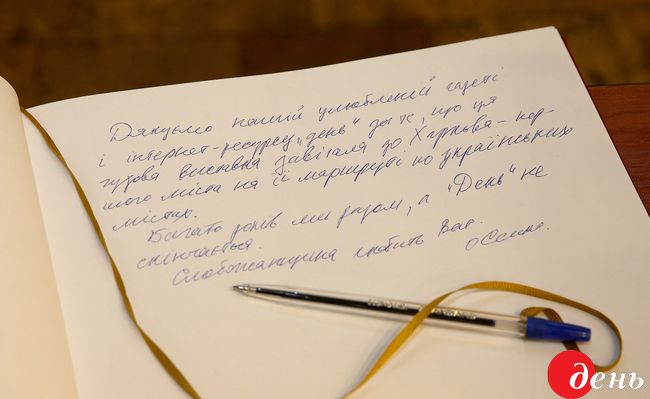 Дякуємо нашій улюбленій газеті
і інтернет-ресурсу "День" за те, що ця
чудова виставка завітала до Харкова - пер-
шого міста на її маршруті по українських
містах.
Багато років ми разом, а "День" не
скінчається.
Слобожанщина любить Вас.
день